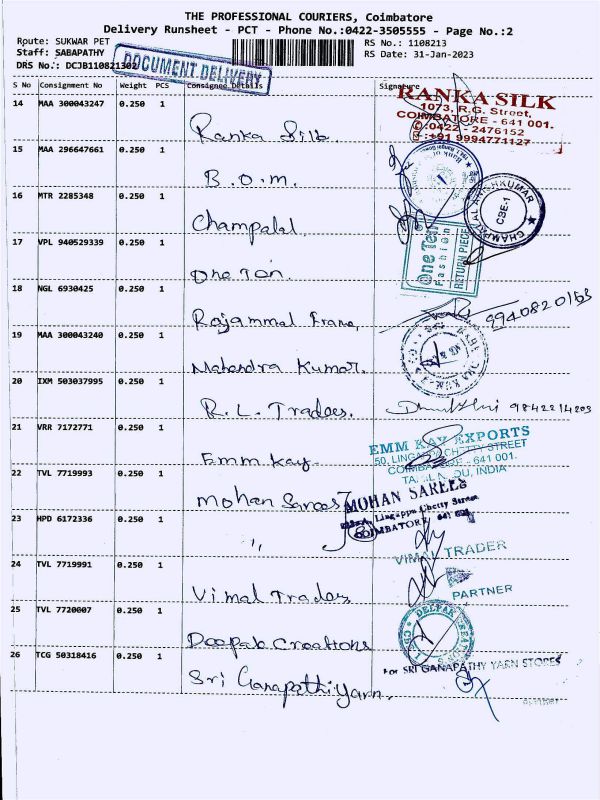 THE PROFESSIONAL COURIERS, Coimbatore
Delivery Runsheet - PCT - Phone No.:0422-3505555 - Page No.:2
Route: SUKWAR PET
RS No.: 1108213
Staff: SABAPATHY
RS Date: 31-Jan-2023
DRS No.: DCJB110821302
DOCUMENT DELIVERY
S No Consignment No Weight PCS Consignee Details Signature
14 MAA 300043247 0.250 1 Ranka Silb.
RANKA SILK
1073, R.G. Street,
COIMBATORE - 641 001.
0422 - 2476152
+91 9994771127
15 MAA 296647661 0.250 1 B.O.M.
16 MTR 2285348 0.250 1 Champalal
CHAMPALAL ANISHKUMAR
CBE-1
17 VPL 940529339 0.250 1 One Ten.
One Ten
Fashion
RETURN PIECE
18 NGL 6930425 0.250 1 Rajammal Frame,
9940820163
19 MAA 300043240 0.250 1 Mahendra Kumar.
20 IXM 503037995 0.250 1 R.L. Traders.
21 VRR 7172771 0.250 1 Emm Kay
EMM KAY EXPORTS
50, LINGAPPA CHETTY STREET
COIMBATORE - 641 001.
TAMIL NADU, INDIA
22 TVL 7719993 0.250 1 Mohan Sarees
MOHAN SAREES
Lingappa Chetty Street
COIMBATORE 641 001
23 HPD 6172336 0.250 1 "
24 TVL 7719991 0.250 1 Vimal Traders
VIMAL TRADER
PARTNER
25 TVL 7720007 0.250 1 Deepak Creations
26 TCG 50318416 0.250 1 Sri Ganapathi Yarn.
For SRI GANAPATHY YARN STORES